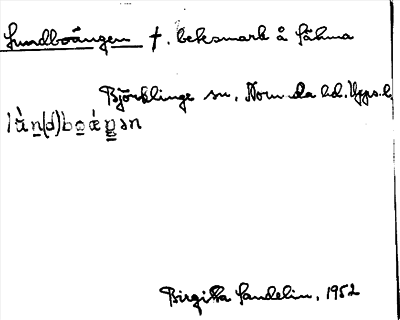 Lundboängen f. beksmark å Såhma
Björklinge sn, Norunda hd. Upps.l.
Birgitta Sandelin, 1952